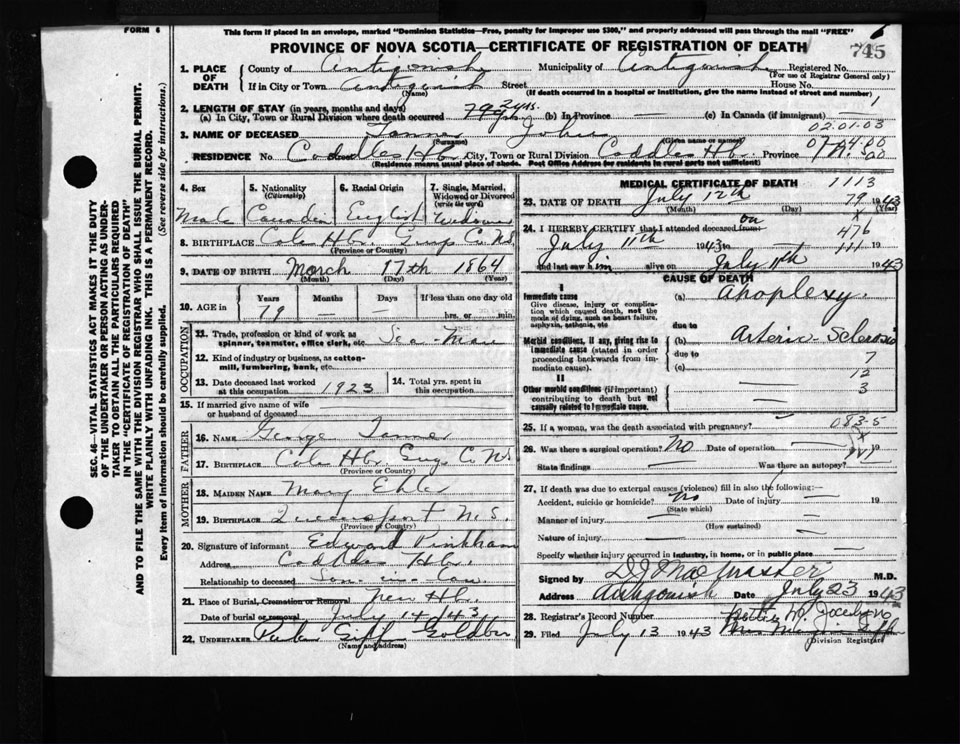 This form if placed in an envelope, marked "Dominion Statistics—Free, penalty for improper use $300," and properly addressed will pass through the mail "FREE"
FORM 6
6
PROVINCE OF NOVA SCOTIA—CERTIFICATE OF REGISTRATION OF DEATH
745
1. PLACE OF DEATH
County of Antigonish Municipality of Antigonish Registered No.
(For use of Registrar General only)
If in City or Town Antigonish Street House No.
(Name) (If death occurred in a hospital or institution, give its name instead of street and number)
1
2. LENGTH OF STAY (in years, months and days)
(a) In City, Town or Rural Division where death occurred (b) In Province — (c) In Canada (if immigrant)
02.01.03
3. NAME OF DECEASED Tanner John
(Surname) (Given name or names)
RESIDENCE No. Coddles Hbr. City, Town or Rural Division Coddles Hbr. Province N.S.
(Residence means usual place of abode. Post Office Address for residents in rural parts not sufficient)
4. Sex
Male
5. Nationality (Citizenship)
Canadian
6. Racial Origin
English
7. Single, Married, Widowed or Divorced (write the word)
Widower
8. BIRTHPLACE Cole Hbr. Guys Co. N.S.
(Province or Country)
9. DATE OF BIRTH March 17th 1864
(Month) (Day) (Year)
10. AGE in Years Months Days If less than one day old
79 — — hrs. or min.
OCCUPATION
11. Trade, profession or kind of work as spinner, teamster, office clerk, etc. Sea Man
12. Kind of industry or business, as cotton-mill, lumbering, bank, etc.
13. Date deceased last worked at this occupation 1923
14. Total yrs. spent in this occupation
15. If married give name of wife or husband of deceased
FATHER
16. NAME George Tanner
17. BIRTHPLACE Cole Hbr. Guys Co. N.S.
(Province or Country)
MOTHER
18. MAIDEN NAME Mary Ehler
19. BIRTHPLACE Queensport N.S.
(Province or Country)
20. Signature of informant Edward Pinkham
Address Coddles Hbr.
Relationship to deceased Son-in-law
21. Place of Burial, Cremation or Removal New Hbr.
Date of burial or removal July 14 43
22. UNDERTAKER Giffin Goldboro
(Name and address)
MEDICAL CERTIFICATE OF DEATH
1113
23. DATE OF DEATH July 12th 1943
(Month) (Day) (Year)
79
24. I HEREBY CERTIFY that I attended deceased from on
476
July 11th 1943 to 19
and last saw h alive on July 11th 1943
CAUSE OF DEATH
I
Immediate cause
Give disease, injury or complication which caused death, not the mode of dying, such as heart failure, asphyxia, asthenia, etc
(a) Apoplexy.
due to
Morbid conditions, if any, giving rise to immediate cause (stated in order proceeding backwards from immediate cause).
(b) Arterio-Sclerosis
due to 7
(c) 12
II
Other morbid conditions (if important) contributing to death but not causally related to immediate cause.
3
25. If a woman, was the death associated with pregnancy?
083-5
26. Was there a surgical operation? No Date of operation — 19
State findings — Was there an autopsy?
27. If death was due to external causes (violence) fill in also the following:—
Accident, suicide or homicide? No Date of injury — 19
(State which)
Manner of injury — (How sustained) —
Nature of injury — —
Specify whether injury occurred in industry, in home, or in public place
Signed by M.D.
Address Antigonish Date July 23 1943
28. Registrar's Record Number
29. Filed July 13 1943
(Division Registrar)
SEC. 46—VITAL STATISTICS ACT MAKES IT THE DUTY OF THE UNDERTAKER OR PERSON ACTING AS UNDERTAKER TO OBTAIN ALL THE PARTICULARS REQUIRED IN THE "CERTIFICATE OF REGISTRATION OF DEATH" AND TO FILE THE SAME WITH THE DIVISION REGISTRAR WHO SHALL ISSUE THE BURIAL PERMIT.
WRITE PLAINLY WITH UNFADING INK. THIS IS A PERMANENT RECORD.
Every item of information should be carefully supplied. (See reverse side for instructions.)